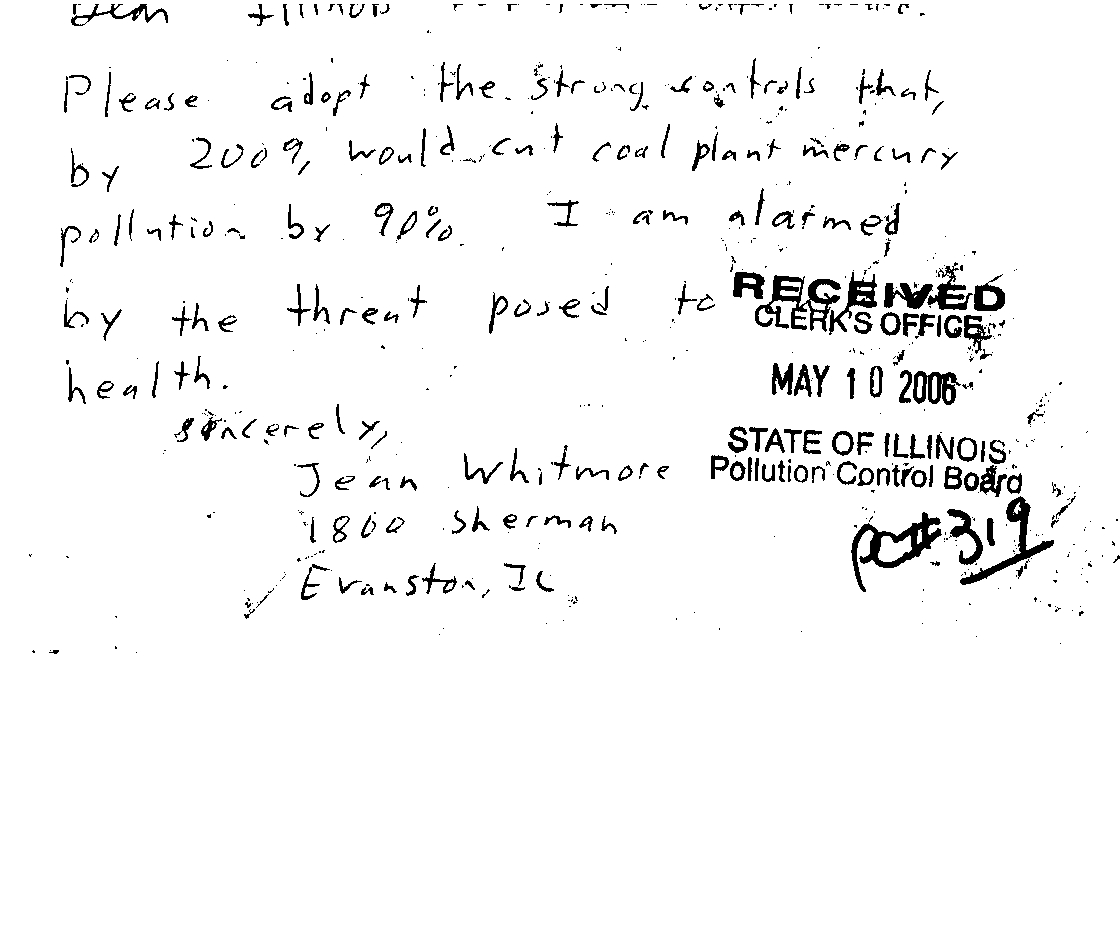 Dear Illinois
Please adopt the strong controls that,
by 2009, would cut coal plant mercury
pollution by 90%. I am alarmed
by the threat posed to
health.
sincerely,
Jean Whitmore
1860 Sherman
Evanston, IL
RECEIVED
CLERK'S OFFICE
MAY 10 2006
STATE OF ILLINOIS
Pollution Control Board
PC# 319